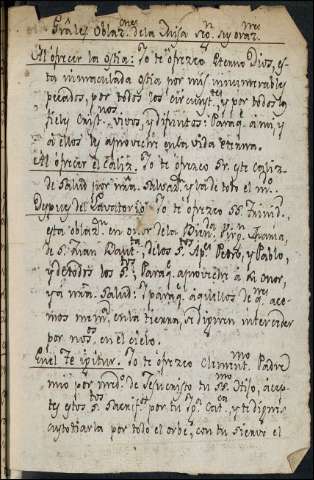 Grāles Oblaz.ones de la Misa
Al ofrecer la ostia: Yo te ofrezco Eterno Dios, es-
ta inmaculada Ostia por mis innumerables
pecados, por todos los circunst.tes y por todos los
fieles Christ.nos vivos, y difuntos: Paraq. a mi, y
a ellos les aproveche en la vida Eterna.
Al ofrecer el Caliz. Yo te ofrezco Sr. este Caliz
de Salud por nra. Salvaz.n y la de todo el m.do
Despues del Lavatorio. Yo te ofrezco SS. Trinid.
esta oblaz.n en onor de la Bien.da Virg.n Maria,
de S. Juan Baut.ta de los S.tos Ap.es Pedro, y Pablo,
y de todos los S.tos Paraq. aproveche à su onor,
y à nra. Salud: y paraq. aquellos de q.nes ace-
mos mem.a en la tierra, se dignen interceder
por nos.os en el cielo.
En el Te igitur. Yo te ofrezco Clement.mo Padre
mio por med.o de Jesucristo tu SS.mo Hijo, acep-
tes estos S.tos Sacrif.os por tu Yg.a Cat.ca y te dignes
custodiarla por todo el orbe, con tu Siervo el